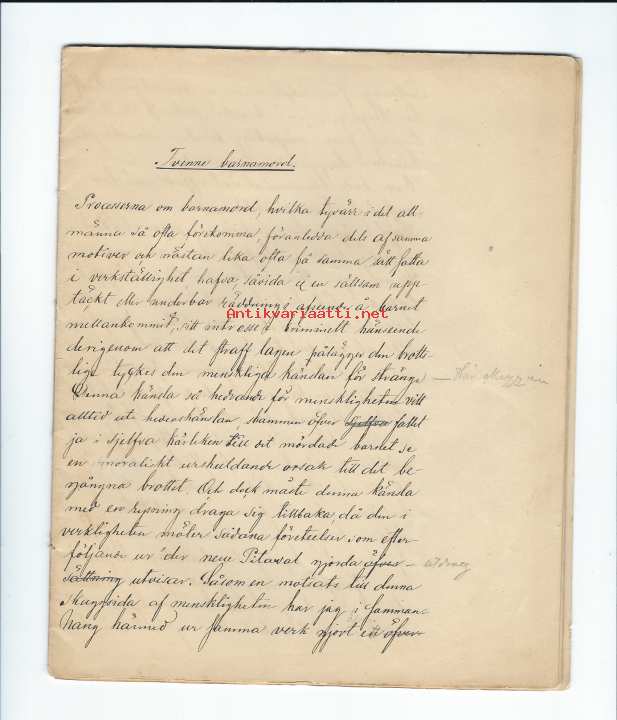 Tvenne barnamord.
Processerna om barnamord, hvilka tyvärr i det all-
männa så ofta förekomma, föranledda dels af samma
motiver och nästan lika ofta på samma sätt satta
i verkställighet, hafva, såvida ej en sällsam upp-
täckt eller underbar räddning i afseende å barnet
mellankommit, sitt intresse i criminelt hänseende
Antikvariaatti.net
derigenom att det straff lagen pålägger den brotts-
liga tyckes den menskliga känslan för strängt
Denna känsla så hedrande för menskligheten vill
alltid uti hederskänslan, skammen öfver sjelfva fallet
ja i sjelfva kärleken till det mördade barnet se
en moraliskt urskuldande orsak till det be-
gångna brottet. Och dock måste denna känsla
med en rysning draga sig tillbaka, då den i
verkligheten möter sådana företeelser som efter-
följande ur "der neue Pitaval gjorda öfver-
sättning utvisar. Såsom en motsats till denna
skuggsida af menskligheten har jag i samman-
hang härmed ur samma verk gjort ett öfver-